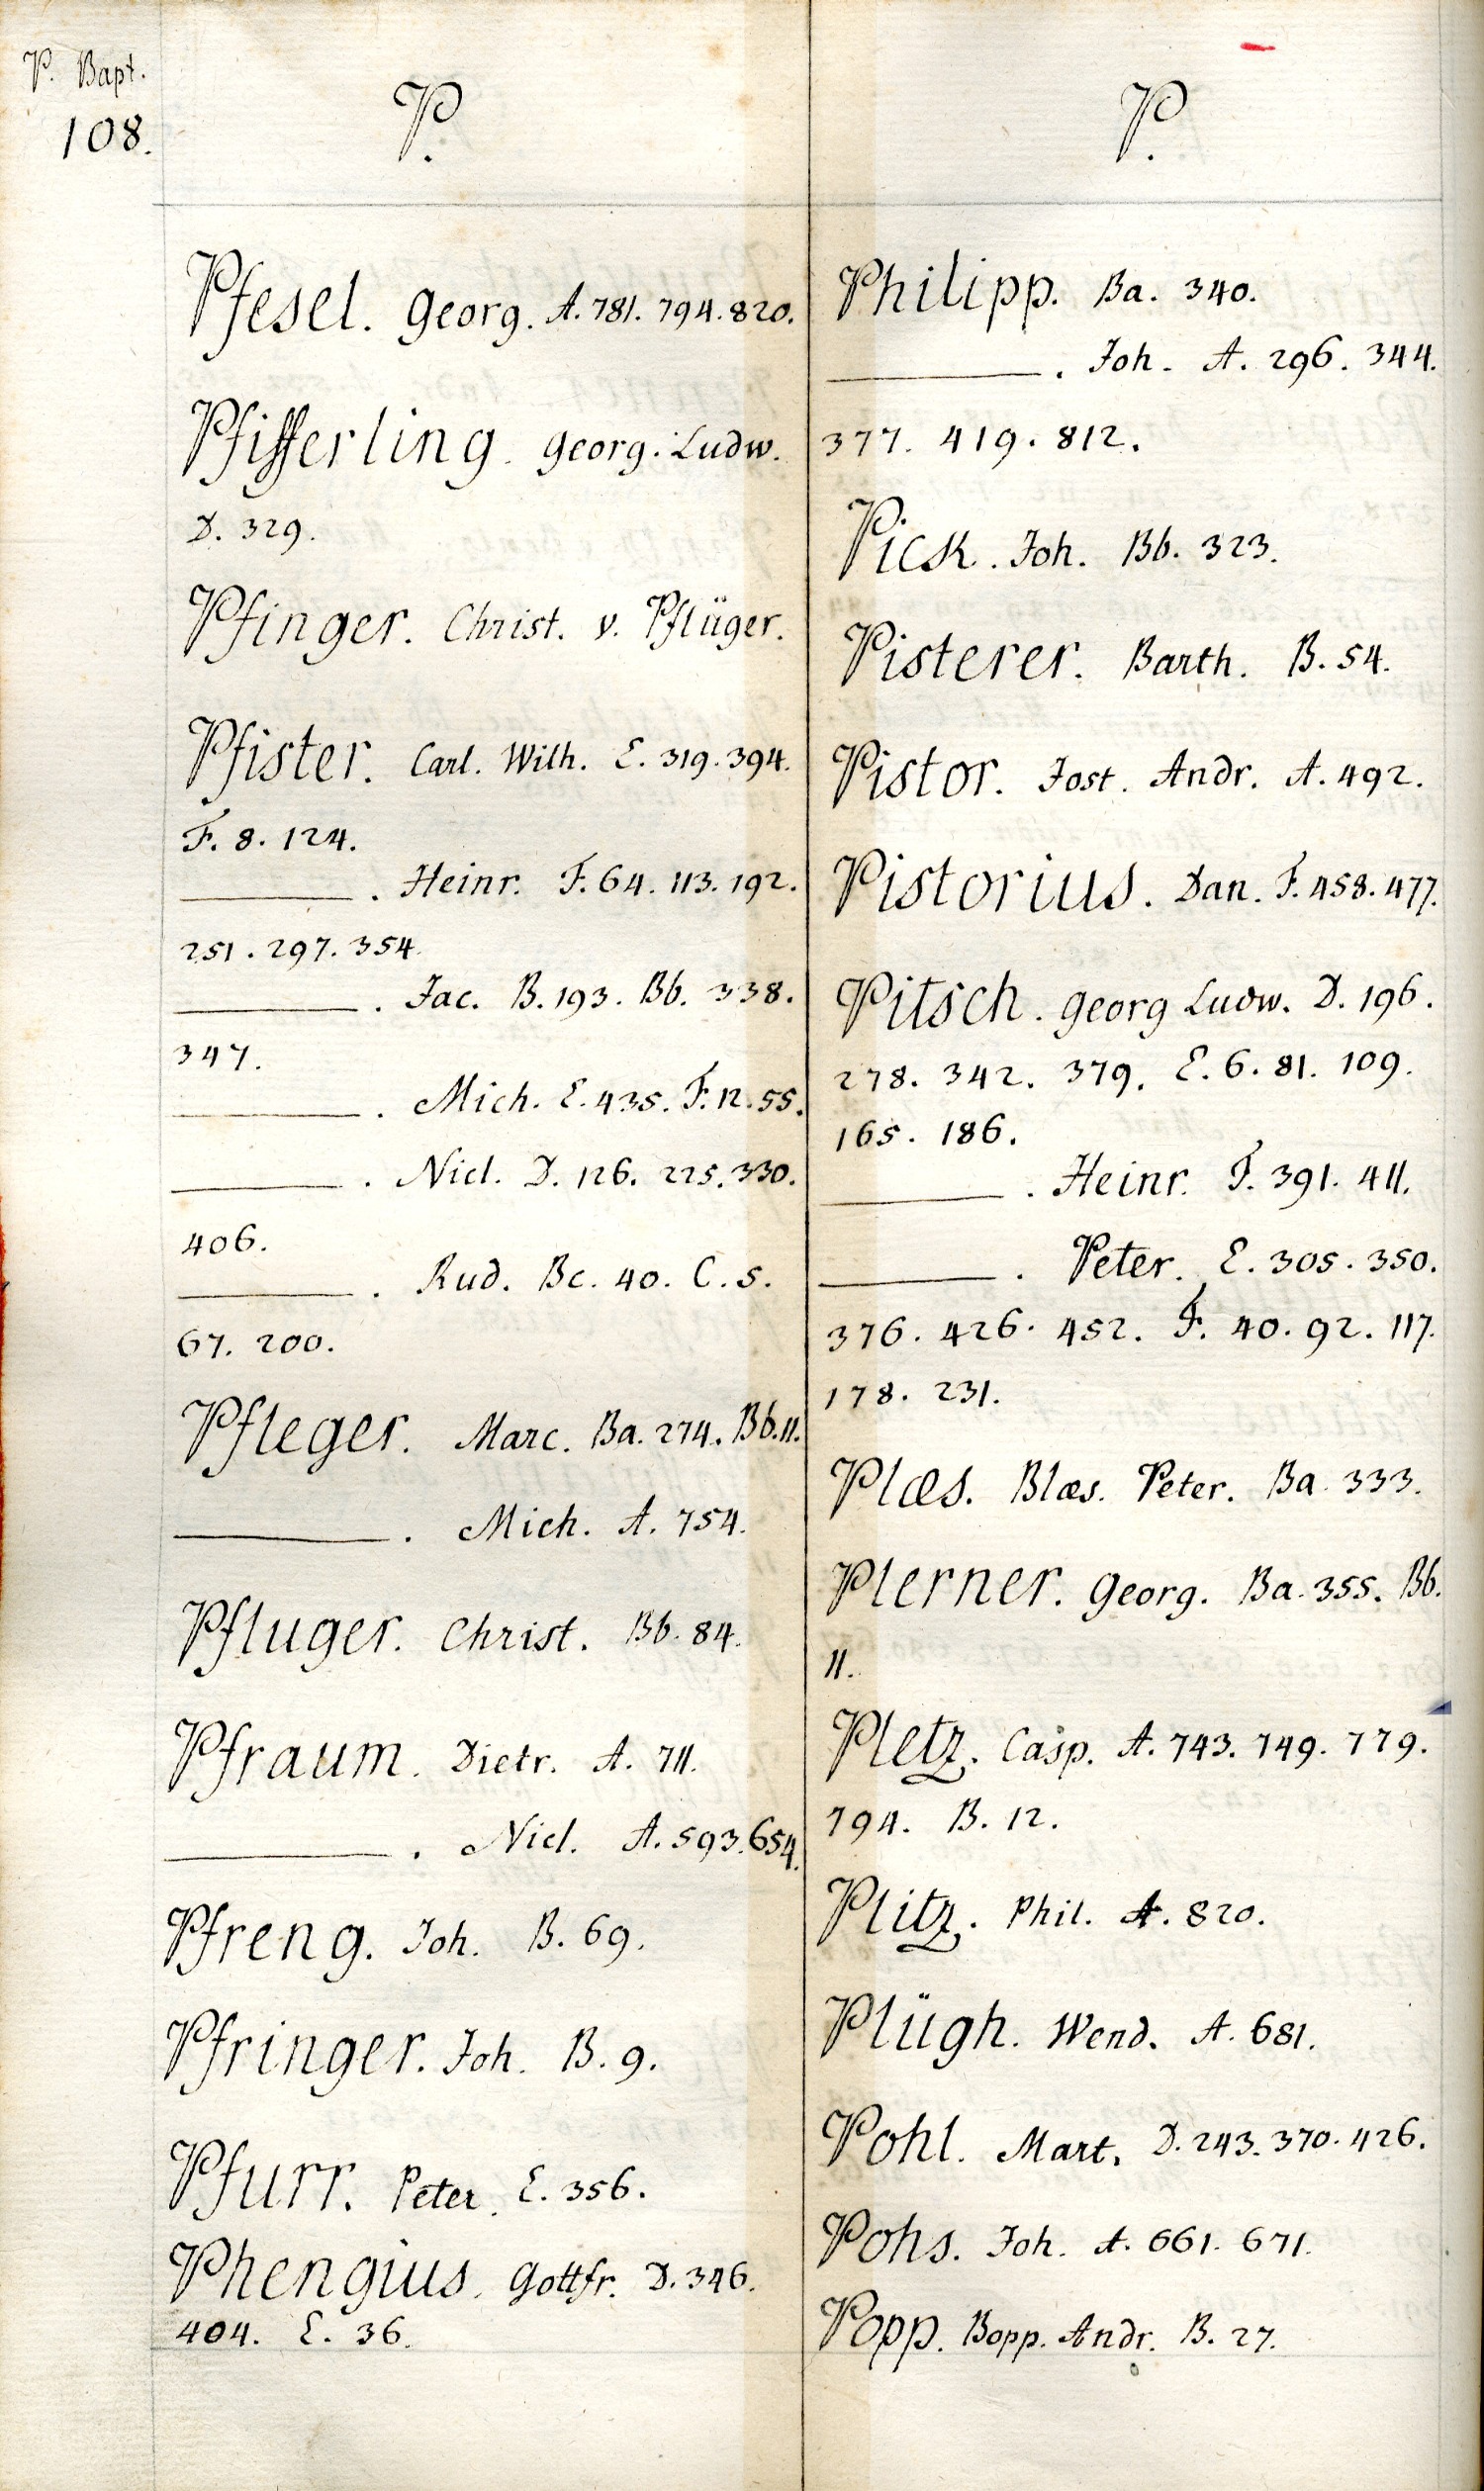 P. Bapt.
108.
P.
Pfesel. Georg. A. 781. 794. 820.
Pfifferling. Georg. Ludw.
D. 329.
Pfinger. Christ. v. Pflüger.
Pfister. Carl. Wilh. E. 319. 394.
F. 8. 124.
———. Heinr. F. 64. 113. 192.
251. 297. 354.
———. Jac. B. 193. Bb. 338.
347.
———. Mich. E. 435. F. 12. 55.
———. Nicl. D. 126. 225. 330.
406.
———. Rud. Bc. 40. C. 5.
67. 200.
Pfleger. Marc. Ba. 274. Bb. 11.
———. Mich. A. 754.
Pfluger. Christ. Bb. 84.
Pfraum. Dietr. A. 711.
———. Nicl. A. 593. 654.
Pfreng. Joh. B. 69.
Pfringer. Joh. B. 9.
Pfurr. Peter. E. 356.
Phengius. Gottfr. D. 346.
404. E. 36.
P.
Philipp. Ba. 340.
———. Joh. A. 296. 344.
377. 419. 812.
Pick. Joh. Bb. 323.
Pisterer. Barth. B. 54.
Pistor. Jost. Andr. A. 492.
Pistorius. Dan. F. 458. 477.
Pitsch. Georg Ludw. D. 196.
278. 342. 379. E. 6. 81. 109.
165. 186.
———. Heinr. F. 391. 411.
———. Peter. E. 305. 350.
376. 426. 452. F. 40. 92. 117.
178. 231.
Plæs. Blæs. Peter. Ba. 333.
Plerner. Georg. Ba. 355. Bb.
11.
Pletz. Casp. A. 743. 749. 779.
794. B. 12.
Plitz. Phil. A. 820.
Plügh. Wend. A. 681.
Pohl. Mart. D. 243. 370. 426.
Pohs. Joh. A. 661. 671.
Popp. Bopp. Andr. B. 27.